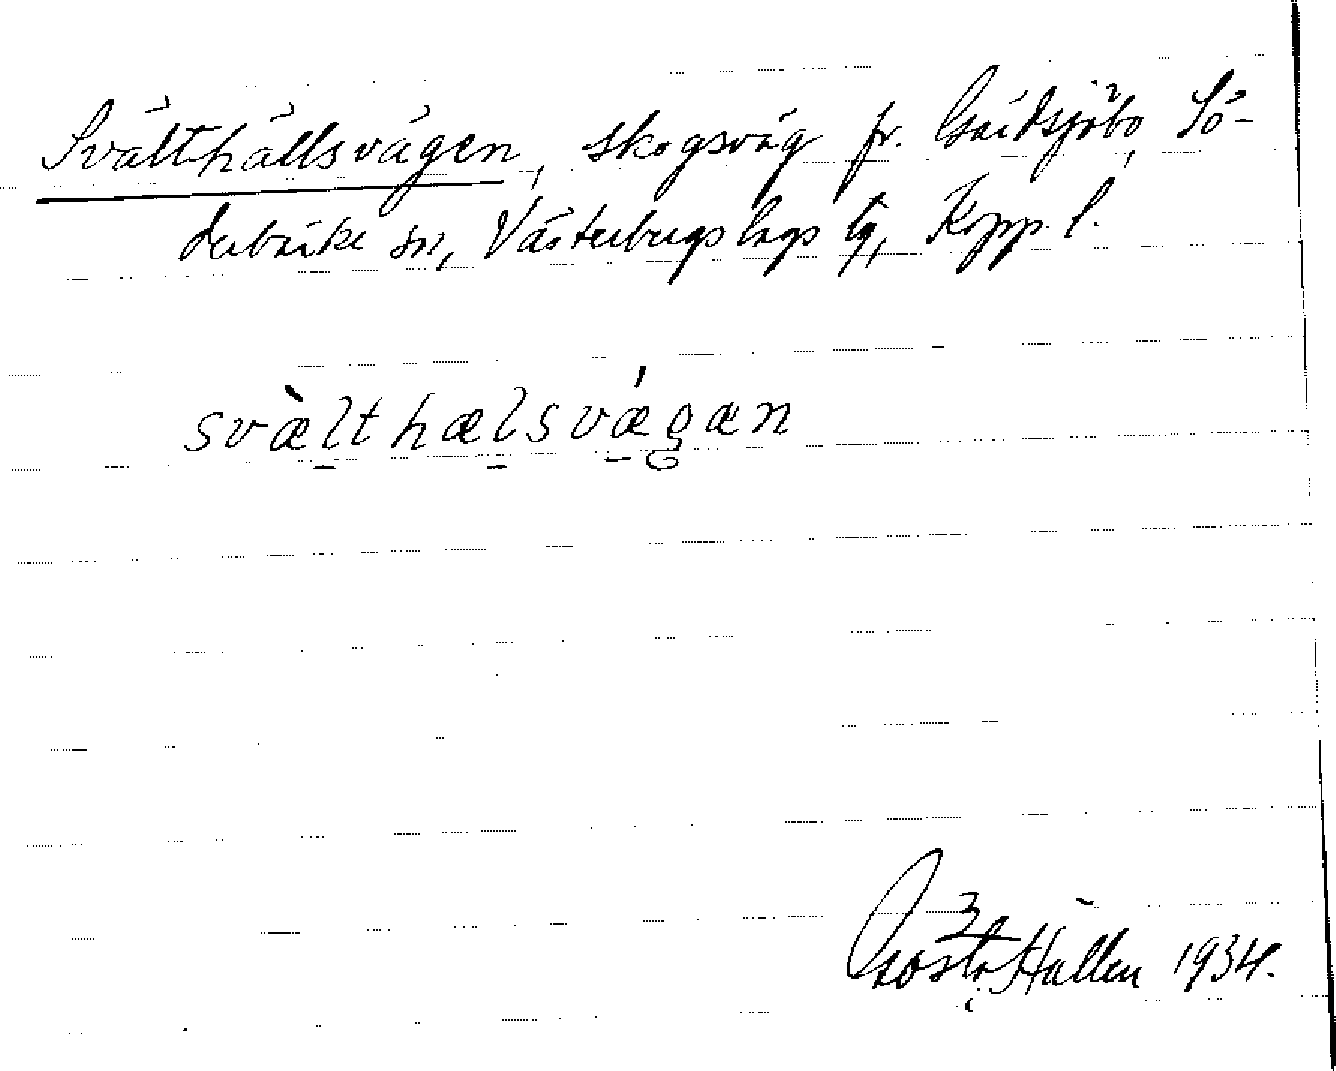 Svälthällsvägen, skogsväg fr. Gårdsjöbo, Sö-
derbärke sn, Västerbergslags tg, Kopp. l.
svæ̀lthælsvǽgæn
Gösta Hallén 1934.